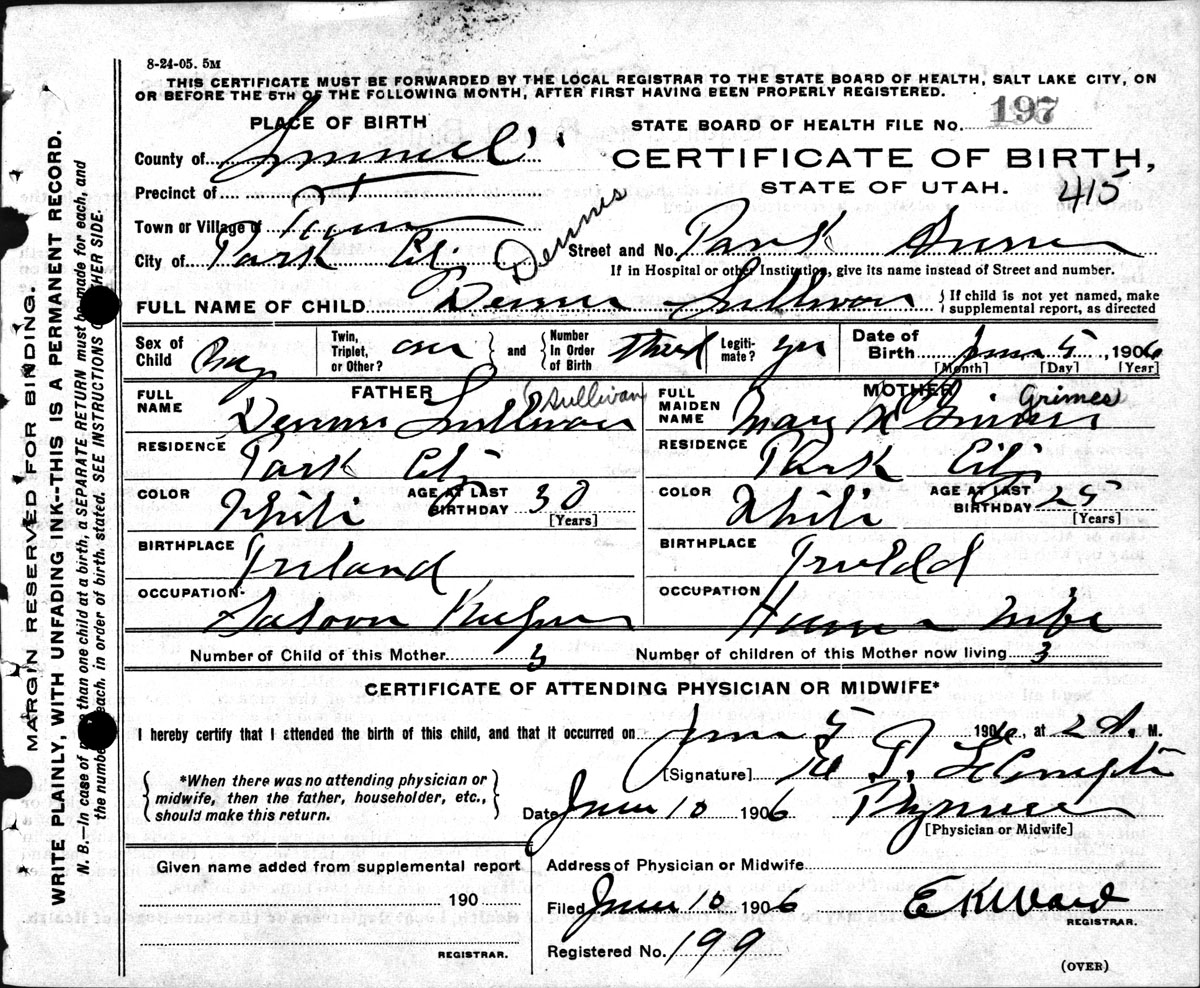 8-24-05. 5M
THIS CERTIFICATE MUST BE FORWARDED BY THE LOCAL REGISTRAR TO THE STATE BOARD OF HEALTH, SALT LAKE CITY, ON
OR BEFORE THE 5TH OF THE FOLLOWING MONTH, AFTER FIRST HAVING BEEN PROPERLY REGISTERED.
PLACE OF BIRTH
STATE BOARD OF HEALTH FILE No. 197
County of Summit
CERTIFICATE OF BIRTH,
STATE OF UTAH. 415
Precinct of
Town or Village of
City of Park City Dennis Street and No. Park Avenue
If in Hospital or other Institution, give its name instead of Street and number.
FULL NAME OF CHILD Dennis Sullivan { If child is not yet named, make supplemental report, as directed
Sex of Child Boy Twin, Triplet, or Other? one } and { Number In Order of Birth third Legitimate? yes Date of Birth June 5, 1906
[Month] [Day] [Year]
FATHER
FULL NAME Dennis Sullivan Sullivan
RESIDENCE Park City
COLOR White AGE AT LAST BIRTHDAY 30
[Years]
BIRTHPLACE Ireland
OCCUPATION Saloon Keeper
MOTHER
FULL MAIDEN NAME Mary Grimes Grimes
RESIDENCE Park City
COLOR White AGE AT LAST BIRTHDAY 25
[Years]
BIRTHPLACE
OCCUPATION House Wife
Number of Child of this Mother 3 Number of children of this Mother now living 3
CERTIFICATE OF ATTENDING PHYSICIAN OR MIDWIFE*
I hereby certify that I attended the birth of this child, and that it occurred on June 5 1906, at 2 A. M.
{ *When there was no attending physician or midwife, then the father, householder, etc., should make this return. }
[Signature]
Date June 10 1906 Physician
[Physician or Midwife]
Given name added from supplemental report
190
REGISTRAR.
Address of Physician or Midwife
Filed June 10 1906 E K Ward
REGISTRAR.
Registered No. 199
(OVER)
MARGIN RESERVED FOR BINDING.
WRITE PLAINLY, WITH UNFADING INK--THIS IS A PERMANENT RECORD.
N. B.—In case of more than one child at a birth, a SEPARATE RETURN must be made for each, and
the number of each, in order of birth, stated. SEE INSTRUCTIONS ON OTHER SIDE.